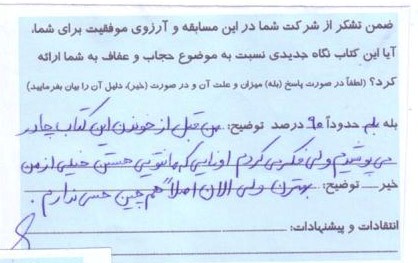 ضمن تشکر از شرکت شما در این مسابقه و آرزوی موفقیت برای شما،
آیا این کتاب نگاه جدیدی نسبت به موضوع حجاب و عفاف به شما ارائه
کرد؟ (لطفاً در صورت پاسخ (بله) میزان و علت آن و در صورت (خیر)، دلیل آن را بیان بفرمایید)
بله بله حدوداً ۹۰ درصد توضیح: من قبل از خوندن این کتاب چادر
می پوشیدم ولی فکر می کردم اونایی که مانتویی هستن خیلی از من
خیر توضیح: بهترن ولی الان اصلاً همچین حسی ندارم.
انتقادات و پیشنهادات: